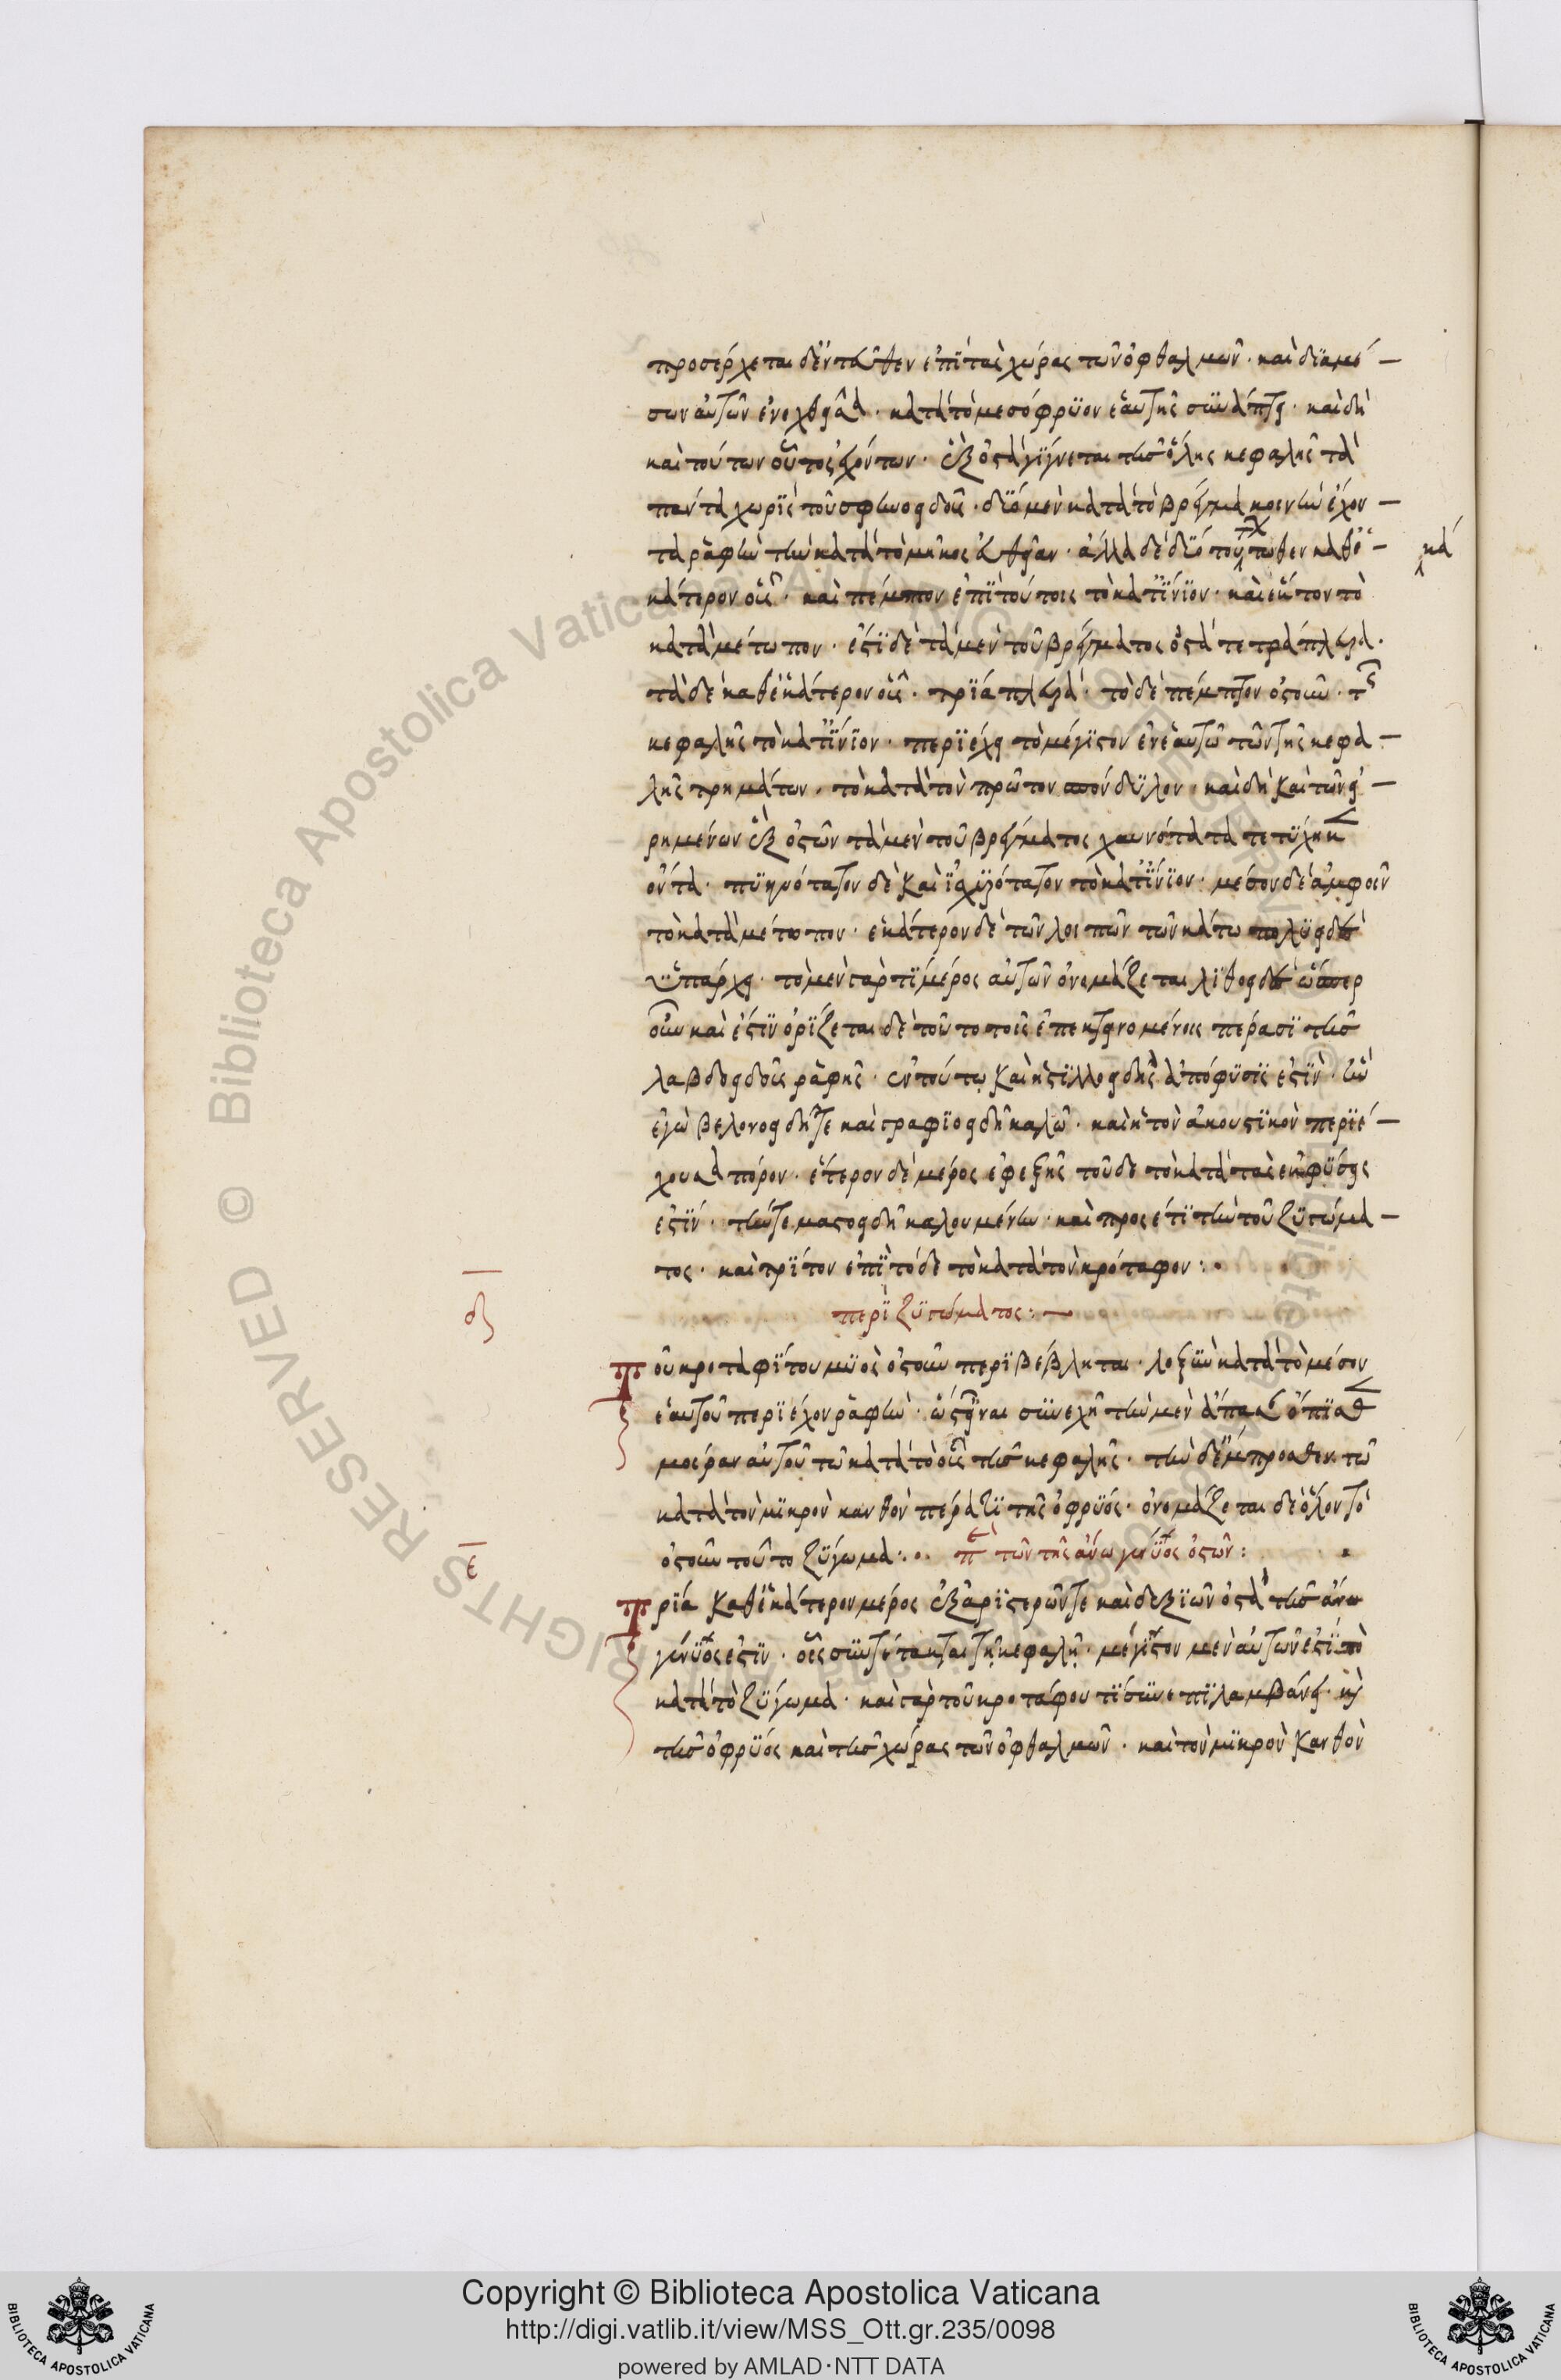 προσέρχεται δ' ἐνταῦθεν ἐπὶ τὰς χώρας τῶν ὀφθαλμῶν · καὶ διὰ μέ –
σων αὐτῶν ἐνεχθεῖσα · κατὰ τὸ μεσόφρυον ἑαυτῆς συνάπτει · καὶ δὴ
καὶ τούτων οὕτως ἐχόντων · ἓξ ὀστᾶ γίγνεται τῆς ὅλης κεφαλῆς τὰ
πάντα χωρὶς τοῦ σφηνοειδοῦς · δύο μὲν κατὰ τὸ βρέγμα κοινὴν ἔχον –
τα ῥαφὴν τὴν κατὰ τὸ μῆκος εὐθεῖαν · ἄλλα δὲ δύο κάτωθεν καθ' ἑ –
κάτερον οὖς · καὶ πέμπτον ἐπὶ τούτοις τὸ κατ' ἰνίον · καὶ ἕκτον τὸ
κατὰ μέτωπον · ἔστι δὲ τὰ μὲν τοῦ βρέγματος ὀστᾶ τετράπλευρα ·
τὰ δὲ καθ' ἑκάτερον οὖς · τρίπλευρα · τὸ δὲ πέμπτον ὀστοῦν · τῆς
κεφαλῆς τὸ κατ' ἰνίον · περιέχει τὸ μέγιστον ἐν ἑαυτῷ τῶν τῆς κεφα –
λῆς τρημάτων · τὸ κατὰ τὸν πρῶτον σπόνδυλον · καὶ δὴ καὶ τῶν εἰ –
ρημένων ἓξ ὀστῶν τὰ μὲν τοῦ βρέγματος χαυνότατα τετύχηκεν
ὄντα · πυκνότατον δὲ καὶ ἰσχυρότατον τὸ κατ' ἰνίον · μέσον δὲ ἀμφοῖν
τὸ κατὰ μέτωπον · ἑκάτερον δὲ τῶν λοιπῶν τῶν κάτω πολυειδὲς
ὑπάρχει · τὸ μὲν γάρ τι μέρος αὐτῶν ὀνομάζεται λιθοειδὲς ὥσπερ
οὖν καὶ ἔστιν ὁρίζεται δὲ τοῦτο τοῖς ἐπεκτεινομένοις πέρασι τῆς
λαβδοειδοῦς ῥαφῆς · ἐν τούτῳ καὶ ἡ στυλοειδὴς ἀπόφυσις ἐστὶν · ἣν
ἐγὼ βελονοειδῆ τε καὶ γραφιοειδῆ καλῶ · καὶ ἡ τὸν ἀκουστικὸν περιέ –
χουσα πόρον · ἕτερον δὲ μέρος ἐφεξῆς τοῦδε τὸ κατὰ τὰς ἐκφύσεις
ἐστίν · τήν τε μαστοειδῆ καλουμένην · καὶ προσέτι τὴν τοῦ ζυγώμα –
τος · καὶ τρίτον ἐπὶ τόδε τὸ κατὰ τὸν κρόταφον :·
δ
περὶ ζυγώματος : –
Τοῦ κροταφίτου μυὸς ὀστοῦν περιβέβληται · λοξὴν κατὰ τὸ μέσον
ἑαυτοῦ περιέχον ῥαφὴν · ὡς εἶναι συνεχῆ τὴν μὲν ἅπασαν ὄπισθεν
μοῖραν αὐτοῦ τῷ κατὰ τὸ οὖς τῆς κεφαλῆς · τὴν δ' ἔμπροσθεν τῷ
κατὰ τὸν μικρὸν κανθὸν πέρατι τῆς ὀφρύος · ὀνομάζεται δὲ ὅλον τὸ
ε
ὀστοῦν τοῦτο ζύγωμα :·· περὶ τῶν τῆς ἄνω γένυος ὀστῶν :
Τρία καθ' ἑκάτερον μέρος ἐξ ἀριστερῶν τε καὶ δεξιῶν ὀστᾶ τῆς ἄνω
γένυος ἐστὶν · οἷς συντέτακται τῇ κεφαλῇ · μέγιστον μὲν αὐτῶν ἐστὶ τὸ
κατὰ τὸ ζύγωμα · καὶ γὰρ τοῦ κροτάφου τι συνεπιλαμβάνει · καὶ
τῆς ὀφρύος καὶ τῆς χώρας τῶν ὀφθαλμῶν · καὶ τὸν μικρὸν κανθὸν
κά
Copyright © Biblioteca Apostolica Vaticana
http://digi.vatlib.it/view/MSS_Ott.gr.235/0098
powered by AMLAD·NTT DATA